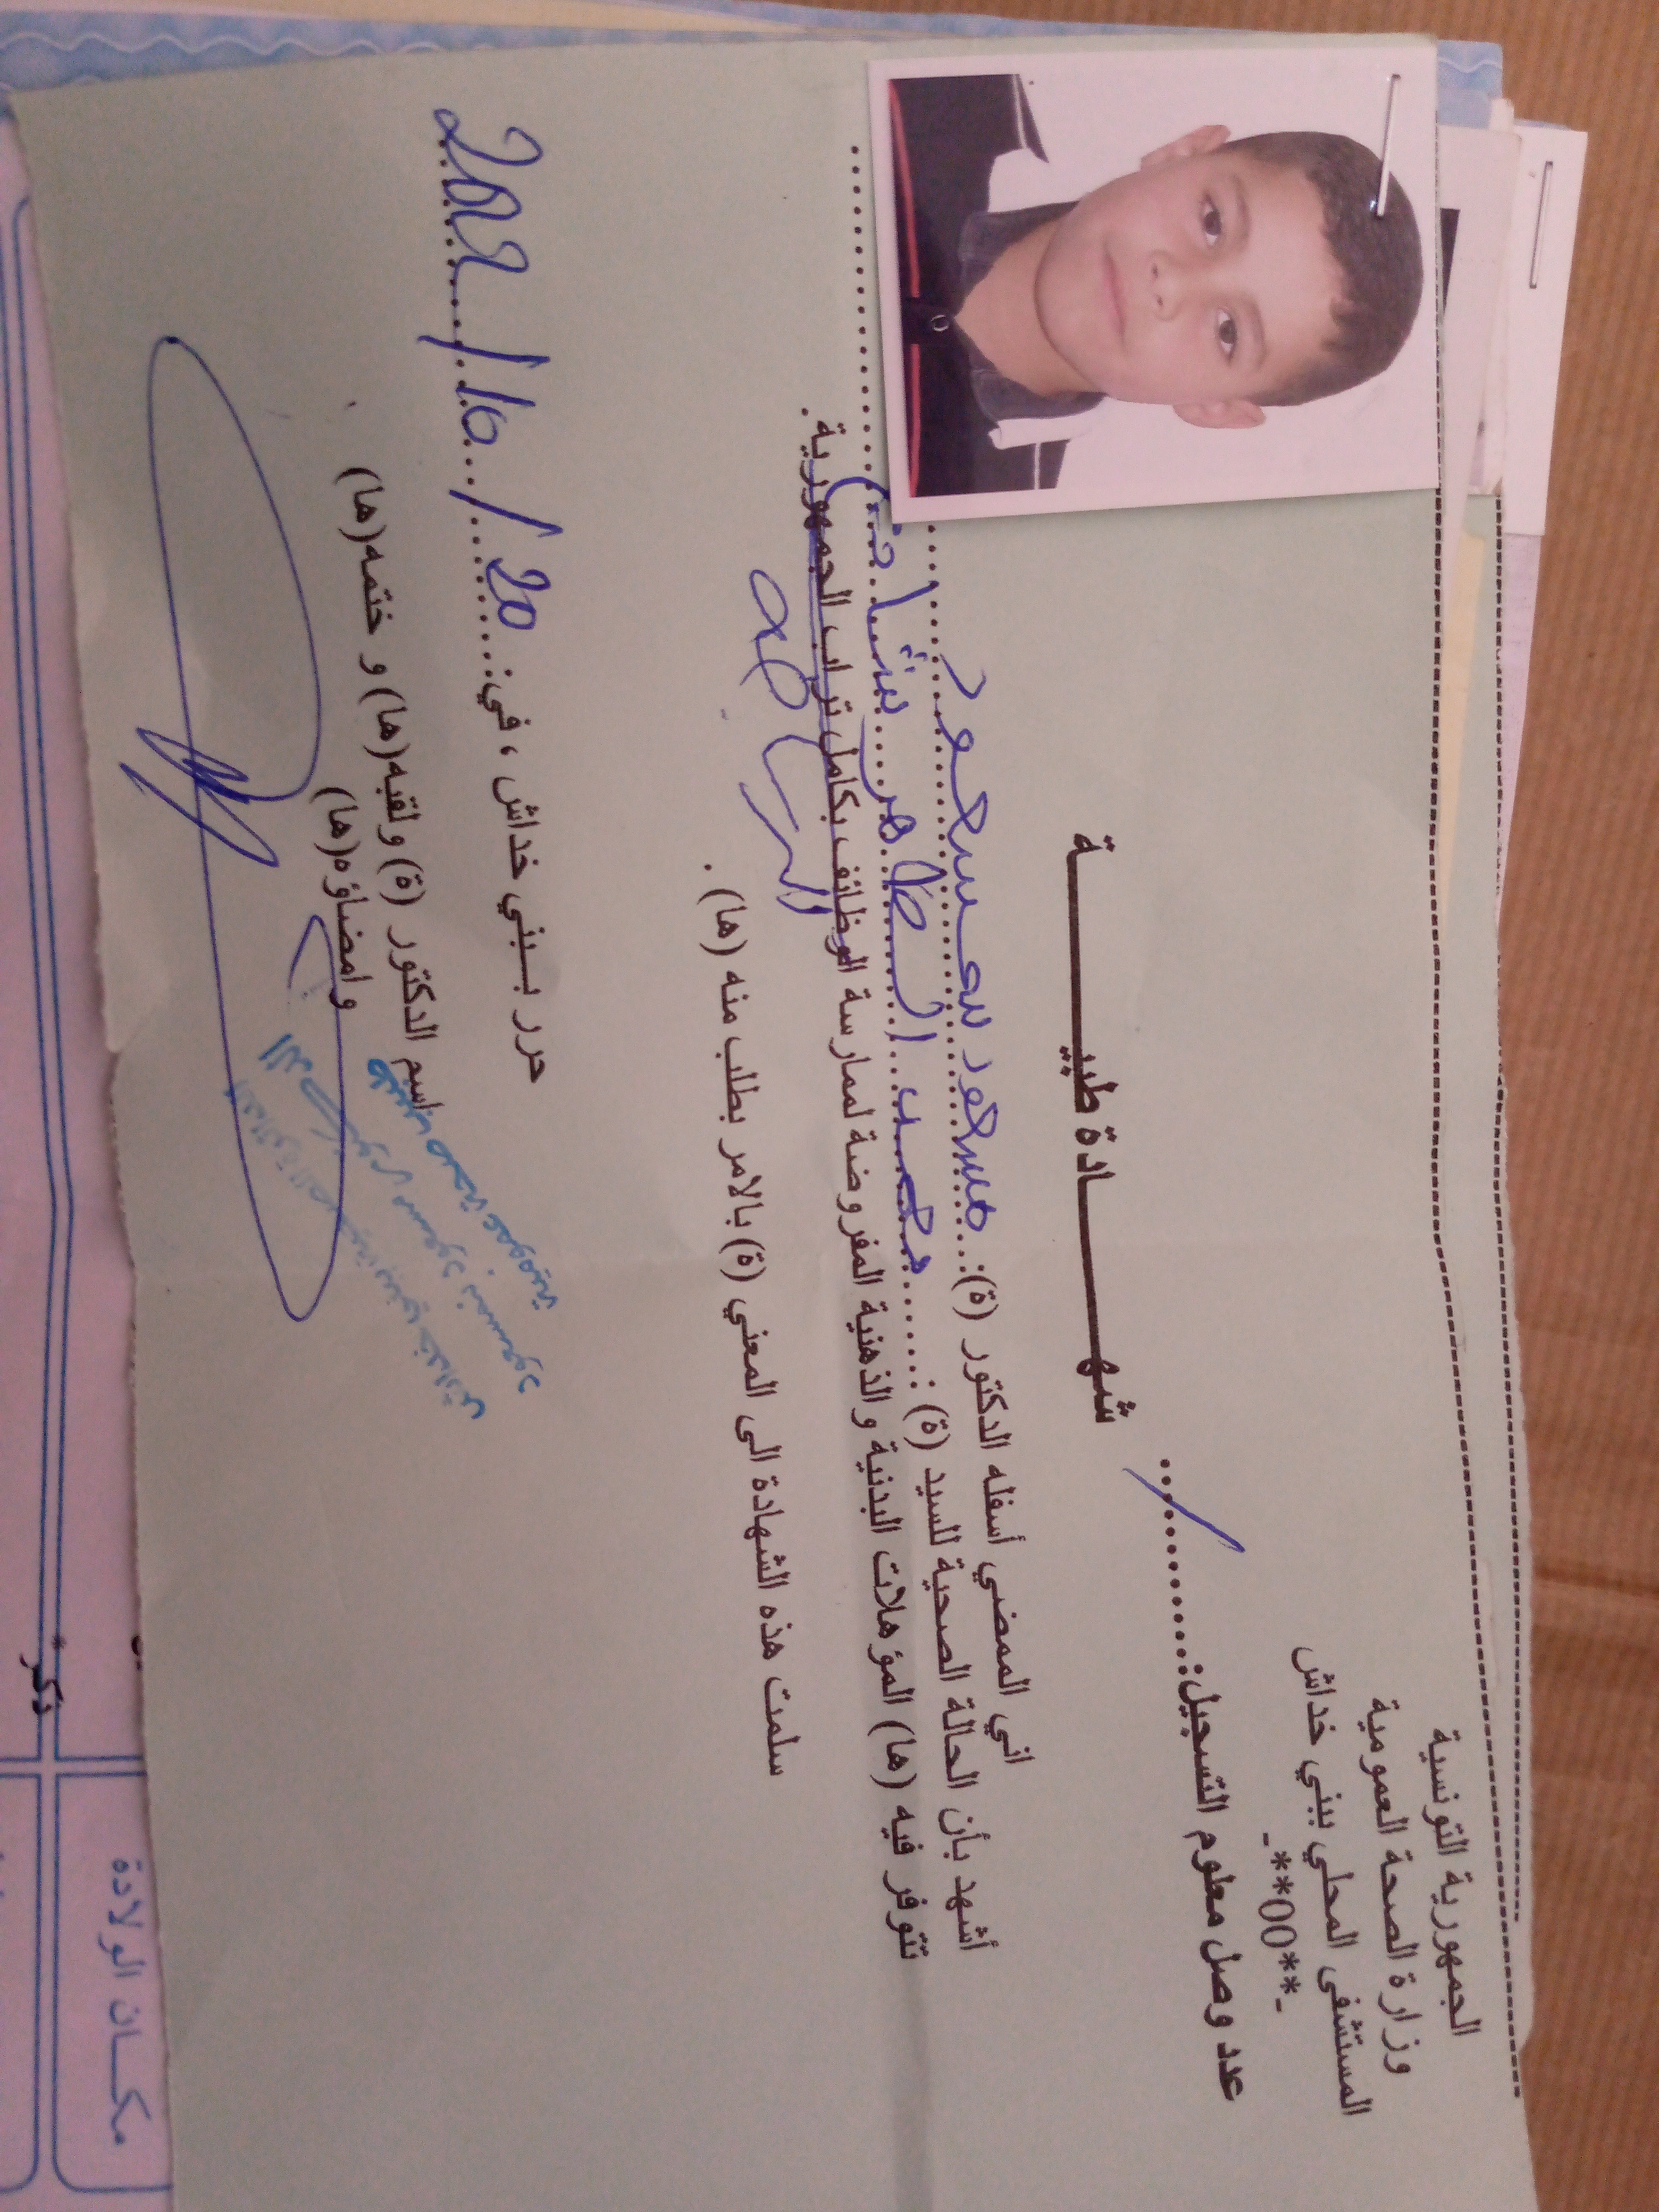 الجمهورية التونسية
وزارة الصحة العمومية
المستشفى المحلي ببني خداش
-**00**-
عدد وصل معلوم التسجيل:............/..
شهــــــادة طبيــــــة
اني الممضي أسفله الدكتور (ة): مسعود سعسعود
أشهد بأن الحالة الصحية للسيد (ة): محمد الطاهر
تتوفر فيه (ها) المؤهلات البدنية والذهنية المفروضة لممارسة الوظائف بكامل تراب الجمهورية.
سلمت هذه الشهادة الى المعني (ة) بالامر بطلب منه (ها).
حرر ببني خداش ، في: 20 / 10 /
اسم الدكتور (ة) ولقبه(ها) و ختمه(ها)
وامضاؤه(ها)
طبيب صحة عمومية
بني خداش
مكان الولادة
ذكر